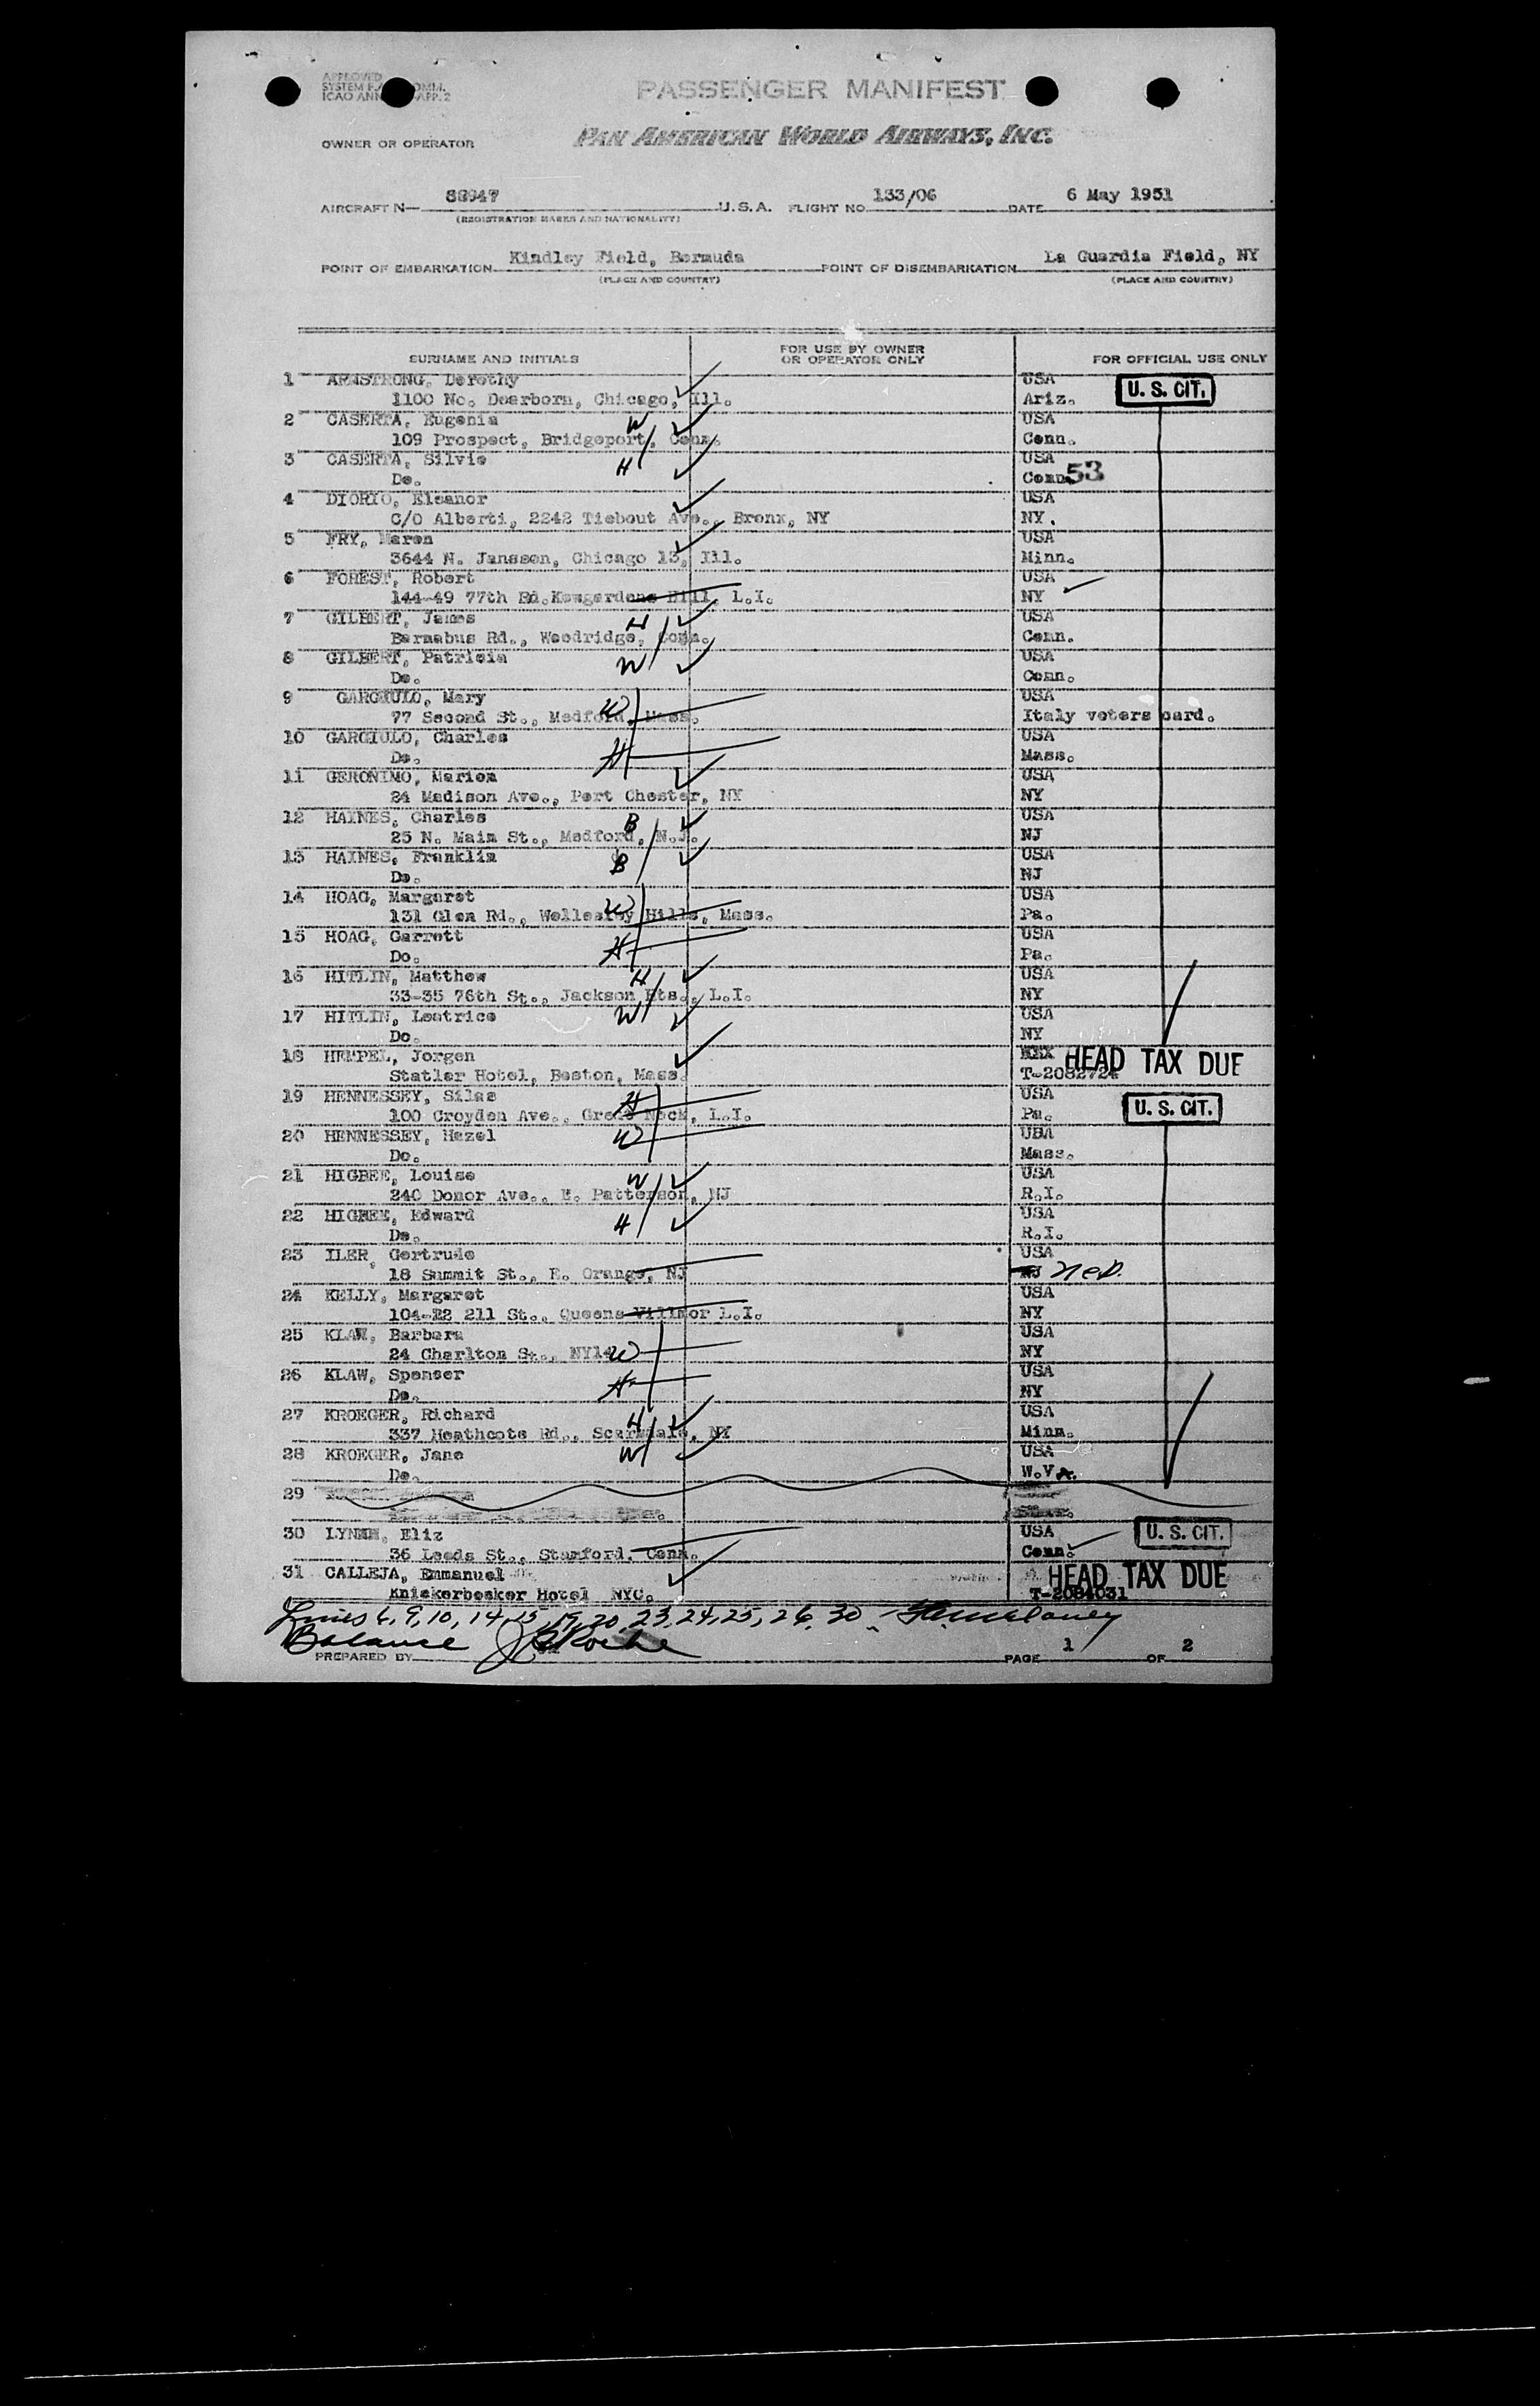 APPROVED
SYSTEM
ICAO
PASSENGER MANIFEST
OWNER OR OPERATOR
PAN AMERICAN WORLD AIRWAYS, INC.
AIRCRAFT N— 88947 U.S.A. FLIGHT NO 133/06 DATE 6 May 1951
(REGISTRATION MARKS AND NATIONALITY)
POINT OF EMBARKATION Kindley Field, Bermuda POINT OF DISEMBARKATION La Guardia Field, NY
(PLACE AND COUNTRY) (PLACE AND COUNTRY)
SURNAME AND INITIALS FOR USE BY OWNER OR OPERATOR ONLY FOR OFFICIAL USE ONLY
1 ARMSTRONG, Dorothy USA U. S. CIT.
1100 No. Dearborn, Chicago, Ill. Ariz.
2 CASERTA, Eugenia W USA
109 Prospect, Bridgeport, Conn. Conn.
3 CASERTA, Silvio H USA
Do. Conn. 53
4 DIORIO, Eleanor USA
C/O Alberti, 2242 Tiebout Ave., Bronx, NY NY.
5 FRY, Maren USA
3644 N. Janssen, Chicago 13, Ill. Minn.
6 FOREST, Robert USA
144-49 77th Rd. Kewgardens Hill, L.I. NY
7 GILBERT, James H USA
Barnabus Rd., Woodridge, Conn. Conn.
8 GILBERT, Patricia W USA
Do. Conn.
9 GARGIULO, Mary W USA
77 Second St., Medford, Mass. Italy voters card.
10 GARGIULO, Charles H USA
Do. Mass.
11 GERONIMO, Marion USA
24 Madison Ave., Port Chester, NY NY
12 HAINES, Charles B USA
25 N. Main St., Medford, N.J. NJ
13 HAINES, Franklin B USA
Do. NJ
14 HOAG, Margaret W USA
131 Glen Rd., Wellesley Hills, Mass. Pa.
15 HOAG, Garrett H USA
Do. Pa.
16 HITLIN, Matthew H USA
33-35 76th St., Jackson Hts., L.I. NY
17 HITLIN, Leatrice W USA
Do. NY
18 HEMPEL, Jorgen HEAD TAX DUE
Statler Hotel, Boston, Mass. T-2082724
19 HENNESSEY, Silas H USA U. S. CIT.
100 Croyden Ave., Great Neck, L.I. Pa.
20 HENNESSEY, Hazel W USA
Do. Mass.
21 HIGBEE, Louise W USA
240 Donor Ave., E. Patterson, NJ R.I.
22 HIGBEE, Edward H USA
Do. R.I.
23 ILER, Gertrude USA
18 Summit St., E. Orange, NJ NJ Neb.
24 KELLY, Margaret USA
104-22 211 St., Queens Villmor L.I. NY
25 KLAW, Barbara USA
24 Charlton St., NY14 W NY
26 KLAW, Spenser H USA
Do. NY
27 KROEGER, Richard H USA
337 Heathcote Rd., Scarsdale, NY Minn.
28 KROEGER, Jane W USA
Do. W.Va.
29
30 LYNCH, Eliz USA U. S. CIT.
36 Leeds St., Stamford, Conn. Conn.
31 CALLEJA, Emmanuel HEAD TAX DUE
Knickerbocker Hotel NYC. T-2084031
Lines 6, 9, 10, 14, 15, 19, 20, 23, 24, 25, 26, 30
Balance
PREPARED BY PAGE 1 OF 2